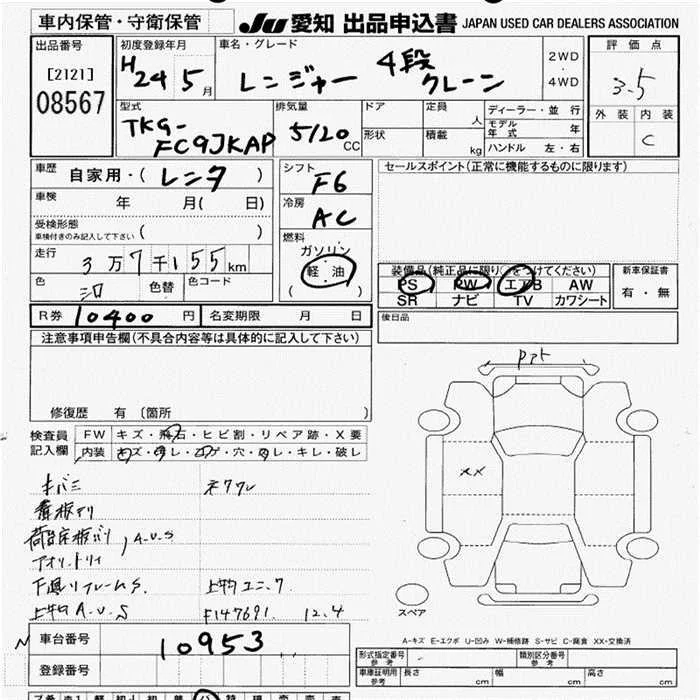 車内保管・守衛保管 JU 愛知 出品申込書 JAPAN USED CAR DEALERS ASSOCIATION
出品番号 初度登録年月 車名・グレード 評価点
[2121] H24 5月 レンジャー 4段クレーン 2WD・4WD 3.5
08567 外装 内装
型式 排気量 ドア 定員 人 ディーラー・並行 C
TKG-FC9JKAP 5120CC 形状 積載 kg モデル年式 年
ハンドル 左・右
車歴 自家用・(レンタ) シフト F6 セールスポイント(正常に機能するものに限ります)
車検 年 月( 日) 冷房 AC
受検形態 ( )
車検付きのみ記入して下さい
燃料 ガソリン
走行 3万7千155km 軽油
( )
装備品(純正品に限り○をつけてください) 新車保証書
色 シロ 色替 色コード PS PW エアB AW 有・無
SR ナビ TV カワシート
R券 10400円 名変期限 月 日 後日品
注意事項申告欄(不具合内容等は具体的に記入して下さい)
修復歴 有 (箇所
検査員記入欄 FW キズ・飛石・ヒビ割・リペア跡・X要
内装 キズ・汚レ・コゲ・穴・スレ・キレ・破レ
キバミ
看板アリ
A.U.S
XX
下廻リフレームS.
上物A.U.S F147691 12.4
スペア
A-キズ E-エクボ U-凹み W-補修跡 S-サビ C-腐食 XX-交換済
車台番号 10953
登録番号
形式指定番号 参考 類別区分番号 参考
車庫証明用 参考 長さ cm 幅 cm 高さ cm